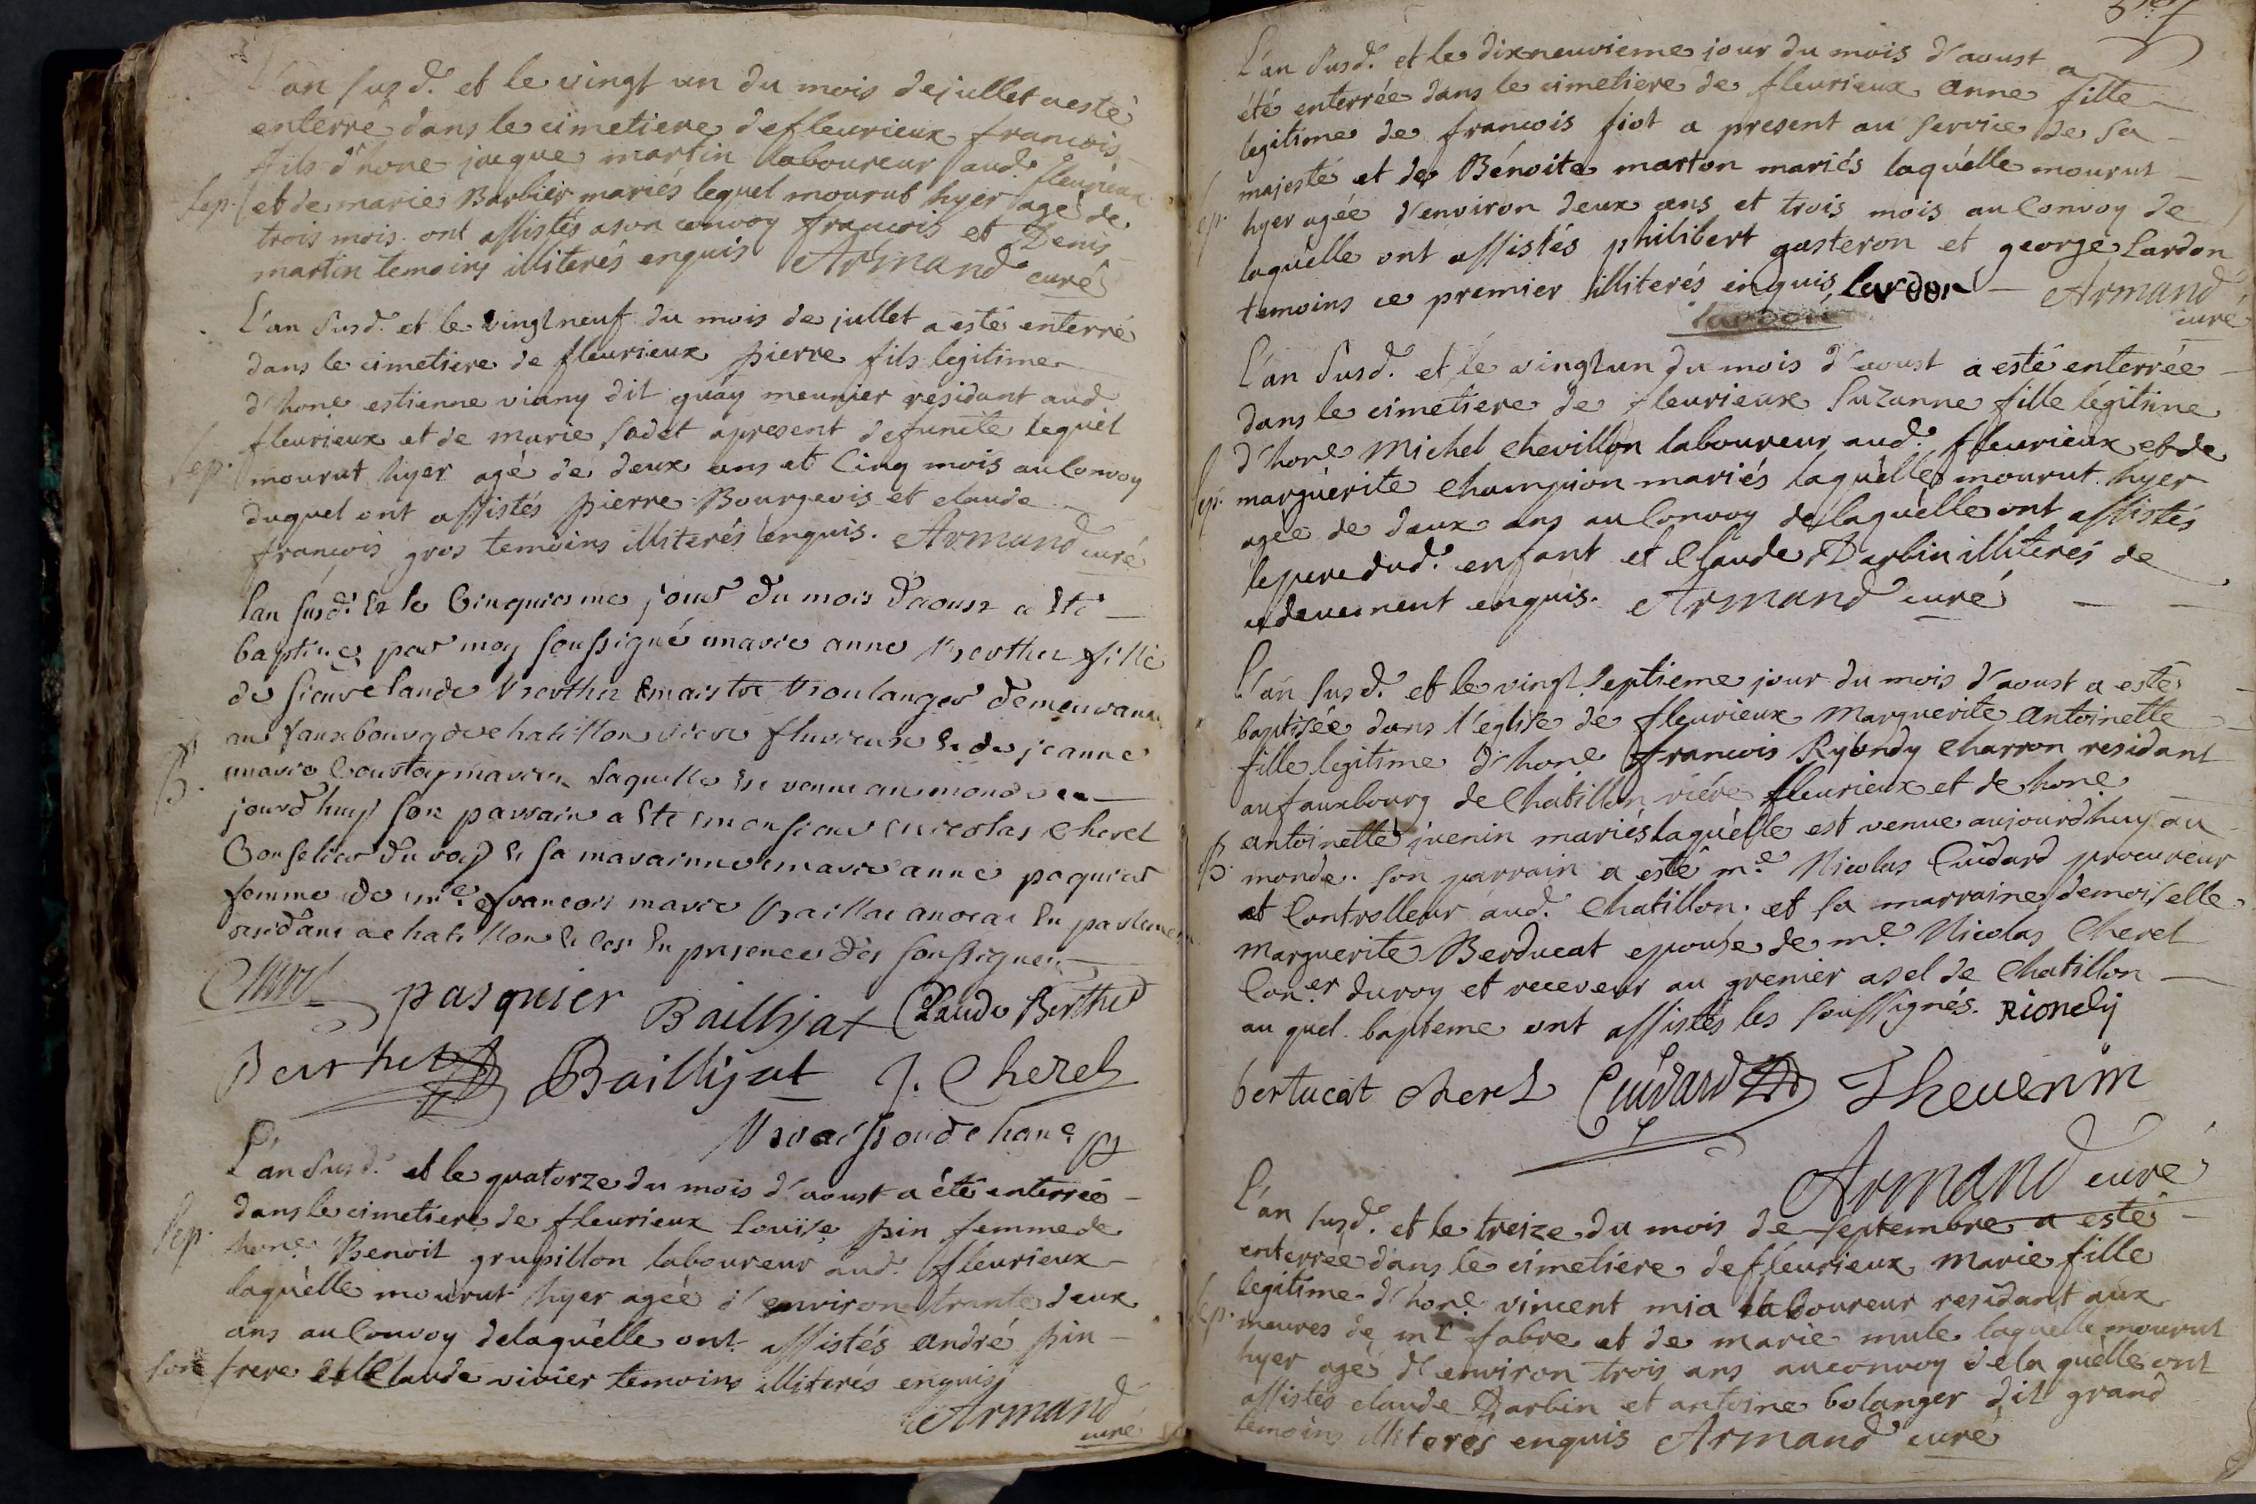 L'an susd. et le vingt un du mois de jullet a esté
enterré dans le cimetiere de fleurieux francois
fils d'hone jacque martin laboureur aud. fleurieux
Sep. et de marie Barbier mariés lequel mourut hyer agé de
trois mois ont assistés a son convoy francois et Denis
martin temoins illiterés enquis Armand curé
L'an susd. et le vingt neuf du mois de jullet a esté enterré
dans le cimetiere de fleurieux pierre fils legitime
d'hone estienne viany dit guay meunier residant aud
fleurieux et de marie sadet apresent defuncte lequel
Sep. mourut hyer agé de deux ans et cinq mois au Convoy
duquel ont assistés pierre Bourgeois et claude
francois gros temoins illiterés enquis. Armand curé
lan susd. et le Cinquiesme jour du mois d'aoust a esté
baptisee par moy soussigné marie anne Berthet fille
de sieur Claude Berthet maistre Boulanger demeurant
au fauxbourg de chatillon riere flurieux et de jeanne
B. marie Coustoy mariez laquelle est venue au monde ce
jourd'huy son parrain a esté monsieur nicolas Cheret
Conselier du roy et sa maraine marie anne paquier
femme de mre francois marie Baillat avocat en parleme
residant a chatillon et ces en presence des soussignez
Cheret pasquier Baillyat Claude Berthet
Berthet Baillyat J. Cherel
L'an susd. et le quatorze du mois d'aoust a été enterrée
dans le cimetiere de fleurieux Louise pin femme de
Sep. hone Benoit grupillon laboureur aud. fleurieux
laquelle mourut hyer ageé d'environ trante deux
ans au Convoy delaquelle ont assistés andré pin
son frere et Claude vivier temoins illiterés enquis
Armand
curé
L'an susd. et le dixneuvieme jour du mois d'aoust a
été enterrée dans le cimetiere de fleurieux Anne fille
legitime de francois fiot a present au service de sa
majesté et de Bénoite marton mariés laquelle mourut
Sep. hyer agée d'environ deux ans et trois mois au Convoy de
laquelle ont assistés philibert gasteron et george Lardon
temoins ce premier illiterés enquis Lardon Armand
curé
L'an susd. et le vingt un du mois d'aoust a esté enterrée
dans le cimetiere de fleurieux Suzanne fille légitime
d'hone Michel Chevillon laboureur aud. fleurieux et de
Sep. marguerite Champion mariés laquelle mourut hyer
agée de deux ans au Convoy delaquelle ont assistés
le pere dud. enfant et Claude Darbin illiterés de
ce deuement enquis. Armand curé
L'an susd. et le vingt septieme jour du mois d'aoust a esté
baptisée dans l'église de fleurieux Marguerite Antoinette
fille legitime d'hone francois Ryondy Charron residant
au fauxbourg de Chatillon riére fleurieux et de hone
antoinette juenin mariés laquelle est venue aujourdhuy au
B. monde. son parrain a esté me Nicolas Cuidard procureur
et Controlleur aud. Chatillon. et sa marraine demoiselle
Marguerite Berducat epouse de me Nicolas Cherel
Coner du roy et receveur au grenier a sel de Chatillon
au quel bapteme ont assistés les soussignés. Riondy
bertucat cherel Cuidard Thevenin
Armand curé
L'an susd. et le treize du mois de septembre a esté
enterrée dans le cimetiere de fleurieux Marie fille
legitime d'hone vincent mia laboureur residant aux
Sep. meures de mr fabre et de marie mule laquelle mourut
hyer agé d'environ trois ans au convoy de la quelle ont
assistés claude Darbin et antoine bolanger dit grand
temoins illiterés enquis Armand curé